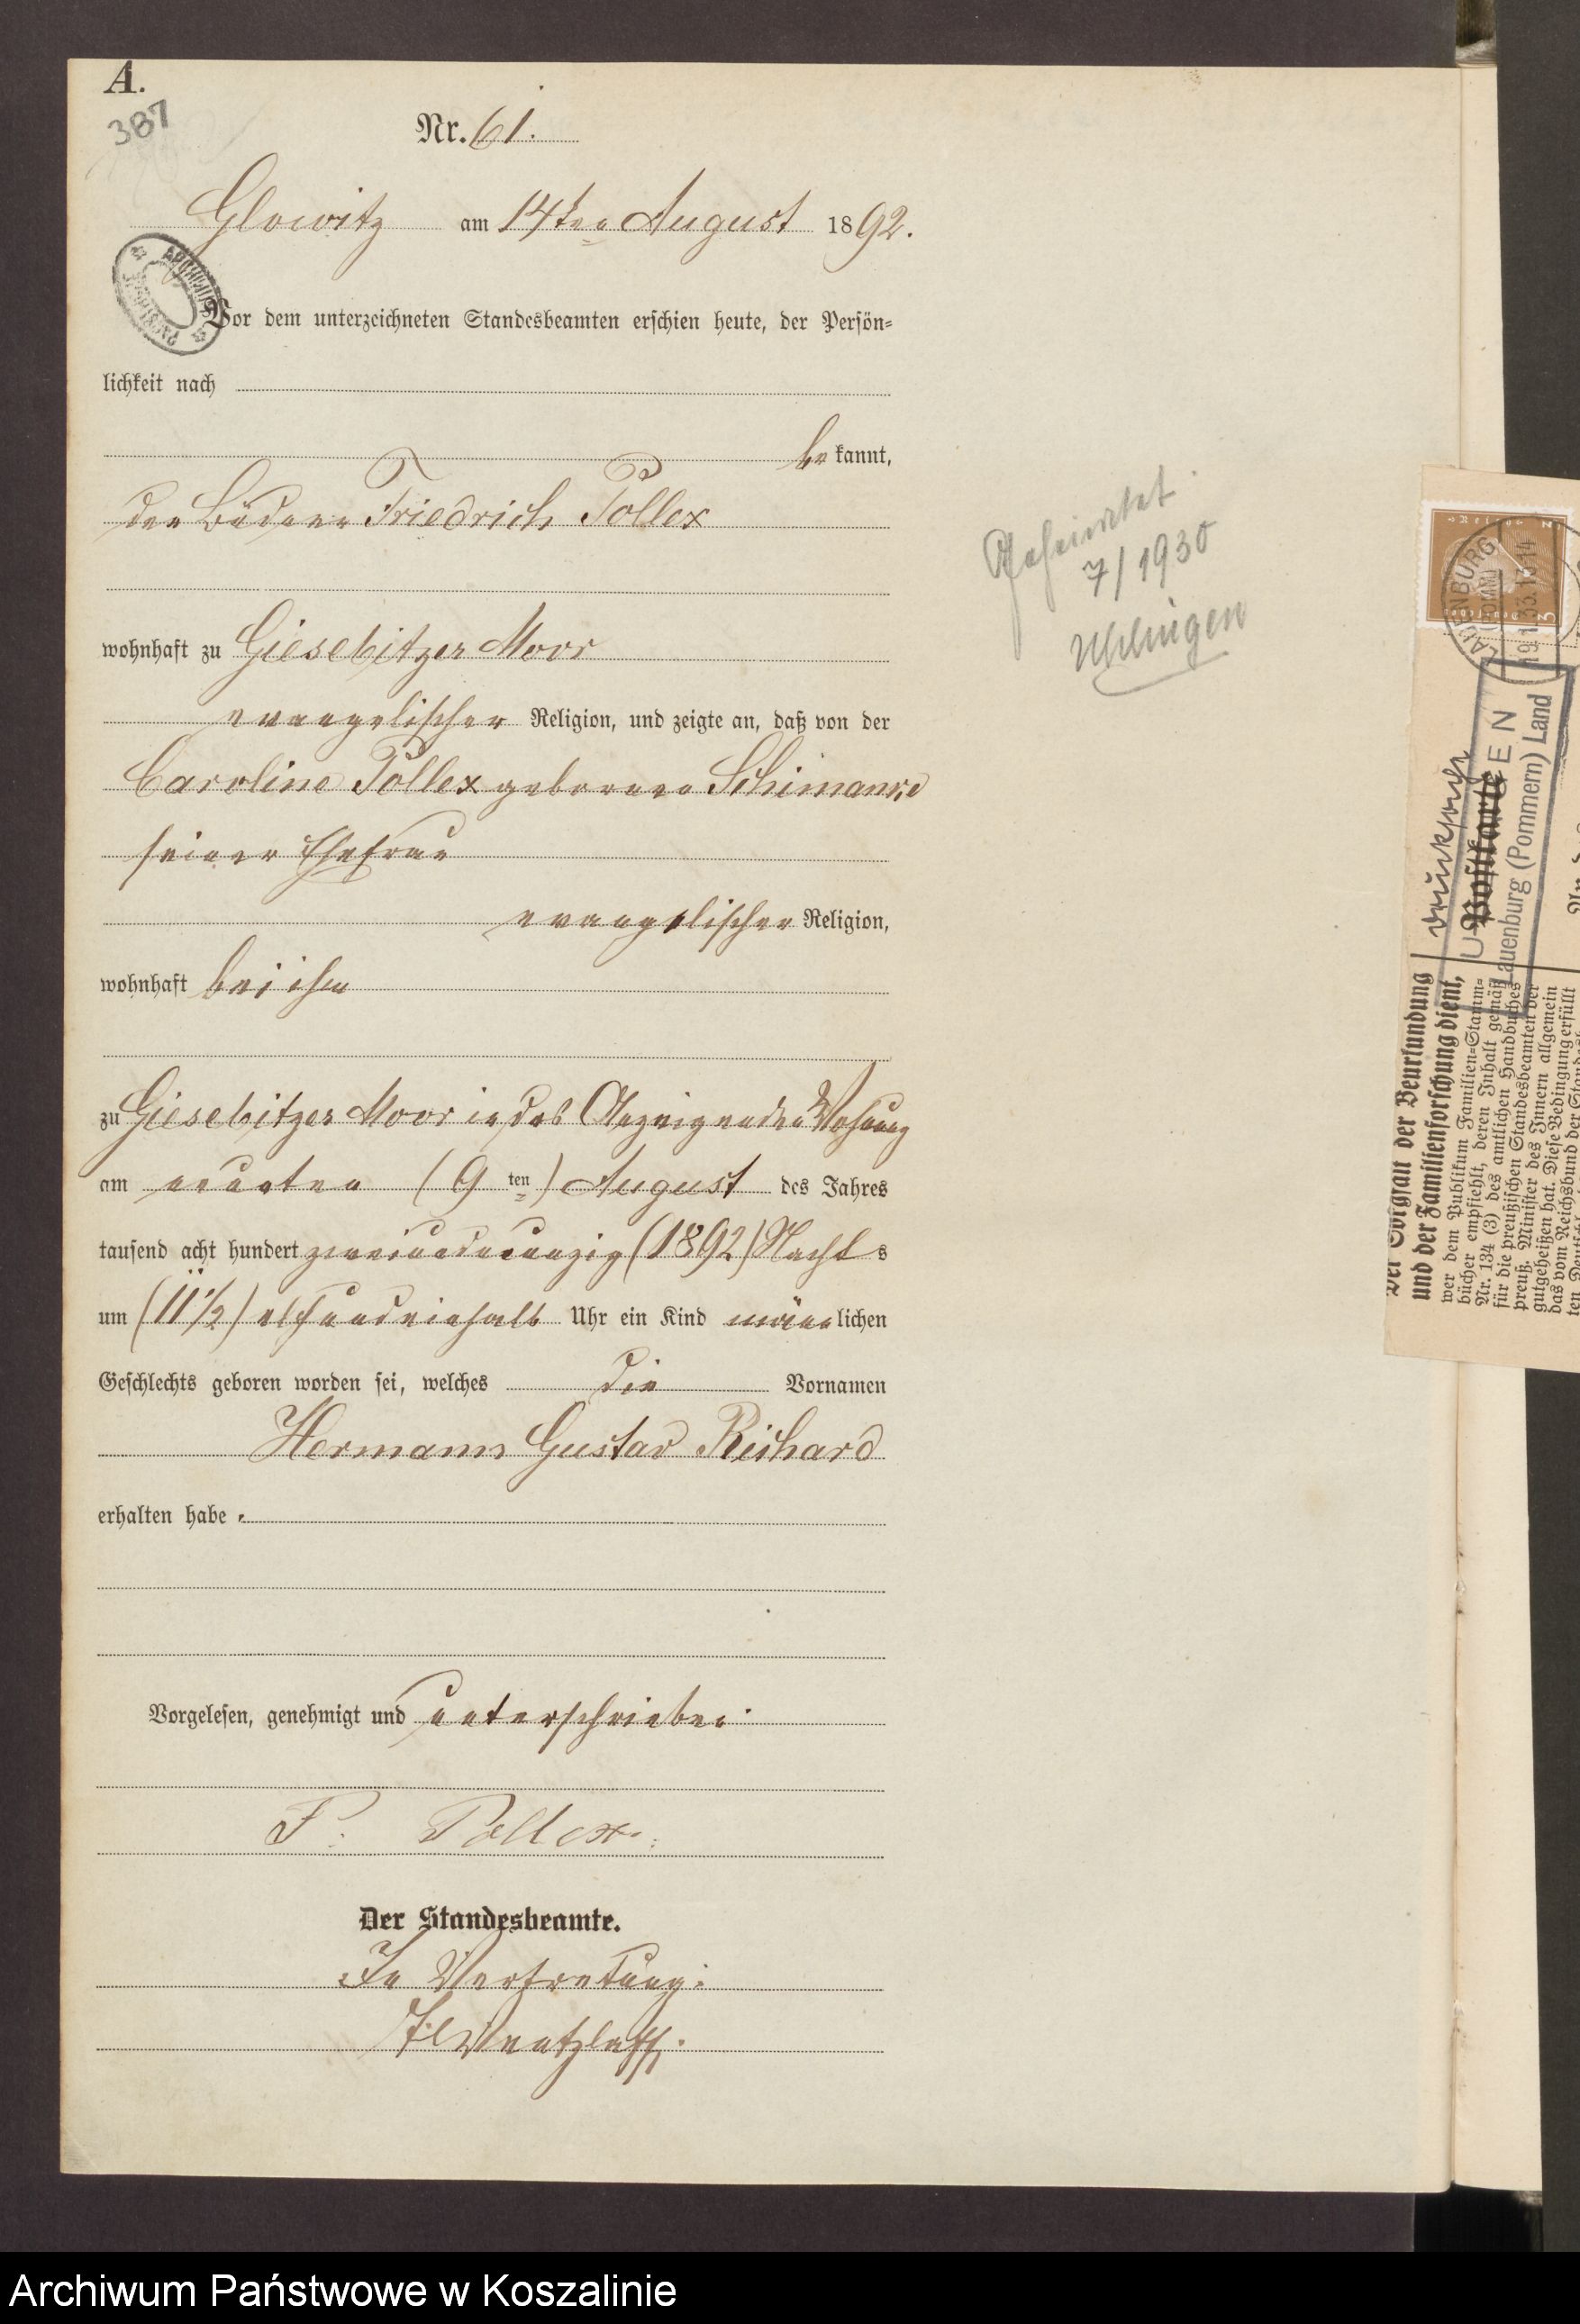 A.
387
Nr. 61.
Glowitz am 14ten August 1892.
Vor dem unterzeichneten Standesbeamten erschien heute, der Persön-
lichkeit nach
bekannt,
der Büdner Friedrich Pollex
wohnhaft zu Giesebitzer Moor
evangelischer Religion, und zeigte an, daß von der
Caroline Pollex geborene Schimanke
seiner Ehefrau
evangelischer Religion,
wohnhaft bei ihm
zu Giesebitzer Moor in des Anzeigenden Wohnung
am neunten (9ten) August des Jahres
tausend acht hundert zweiundneunzig (1892) Nachts
um (11 1/2) elfundeinhalb Uhr ein Kind männlichen
Geschlechts geboren worden sei, welches die Vornamen
Hermann Gustav Richard
erhalten habe.
Vorgelesen, genehmigt und unterschrieben.
F. Pollex.
Der Standesbeamte.
In Vertretung:
Wentzlaff.
Geheiratet
7/1930
Uhlingen
LAUENBURG
(POMM)
19.1.33.13-14
Drucksache
Postkarte
EN
Lauenburg (Pommern) Land
Der Sorgfalt der Beurkundung
und der Familienforschung dient,
wer dem Publikum Familien-Stamm-
bücher empfiehlt, deren Inhalt gemäß
Nr. 134 (3) des amtlichen Handbuches
für die preußischen Standesbeamten der
preuß. Minister des Innern allgemein
gutgeheißen hat. Diese Bedingung erfüllt
das vom Reichsbund der
Archiwum Państwowe w Koszalinie